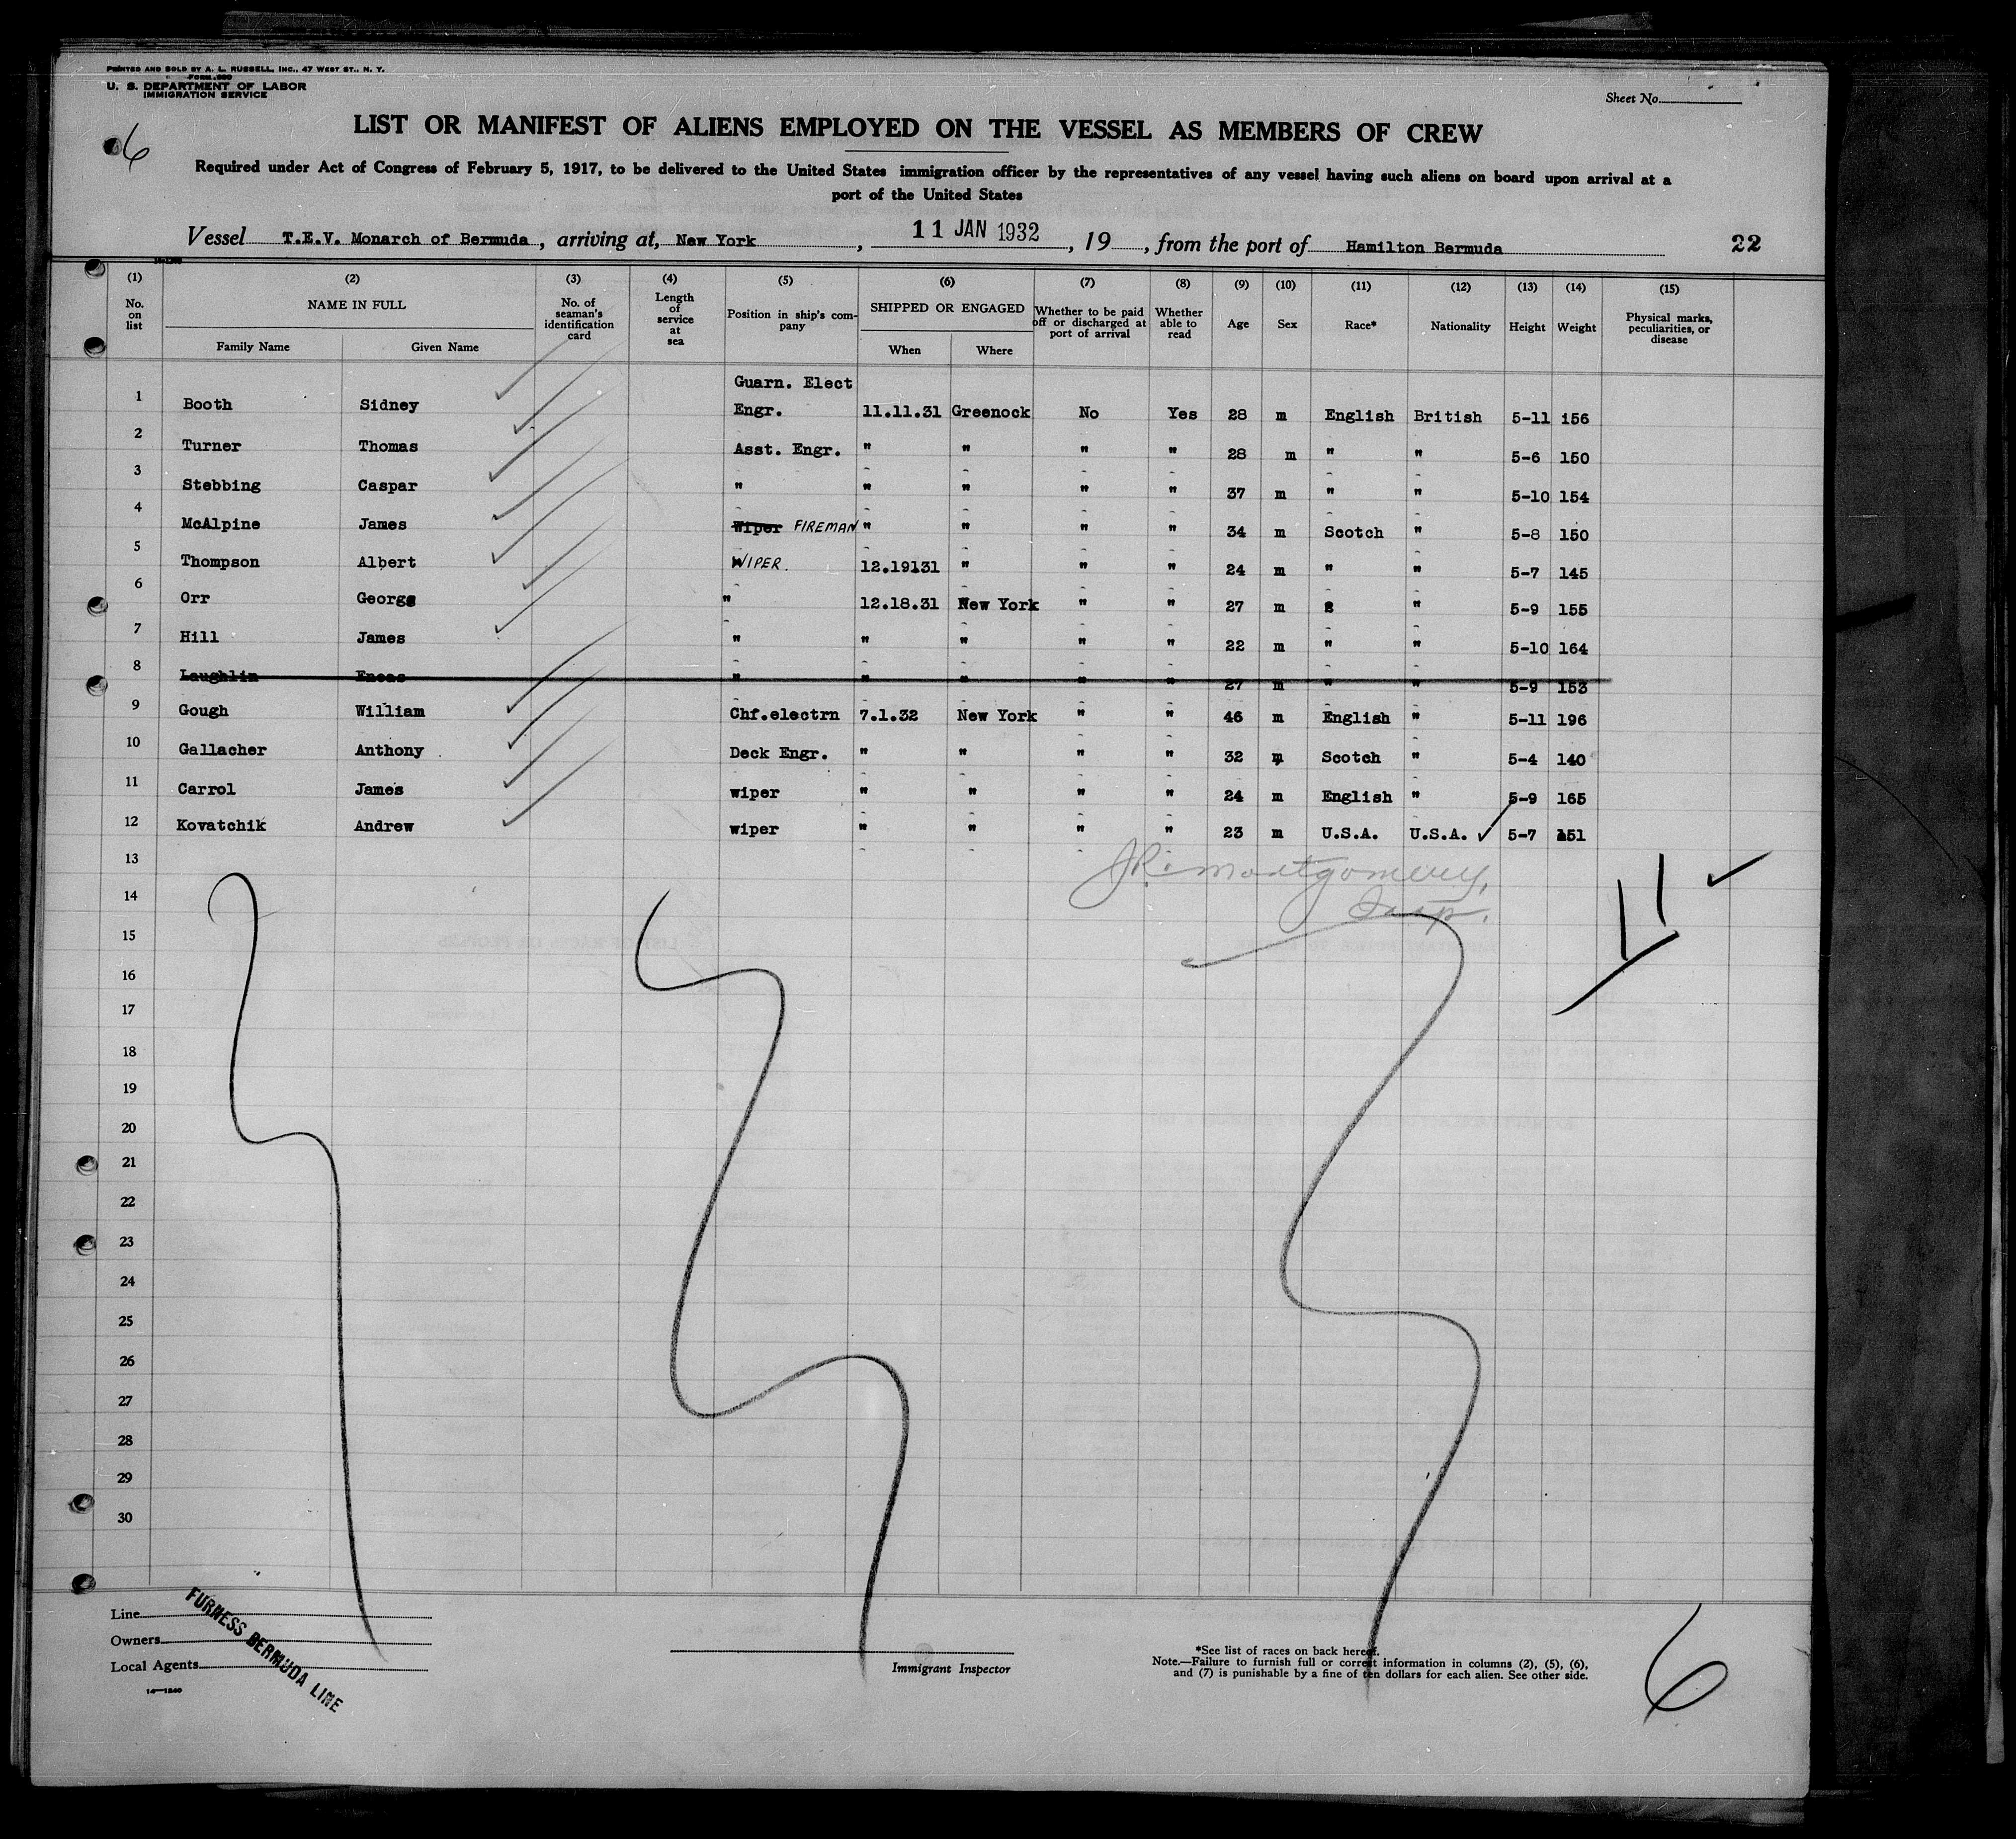 PRINTED AND SOLD BY A. L. RUSSELL, INC., 47 WEST ST., N. Y.
FORM 680
U. S. DEPARTMENT OF LABOR
IMMIGRATION SERVICE
Sheet No.
6
LIST OR MANIFEST OF ALIENS EMPLOYED ON THE VESSEL AS MEMBERS OF CREW
Required under Act of Congress of February 5, 1917, to be delivered to the United States immigration officer by the representatives of any vessel having such aliens on board upon arrival at a
port of the United States
Vessel T.E.V. Monarch of Bermuda, arriving at, New York, 11 JAN 1932, 19, from the port of Hamilton Bermuda 22
(1) (2) (3) (4) (5) (6) (7) (8) (9) (10) (11) (12) (13) (14) (15)
No. on list NAME IN FULL Family Name Given Name No. of seaman's identification card Length of service at sea Position in ship's company SHIPPED OR ENGAGED When Where Whether to be paid off or discharged at port of arrival Whether able to read Age Sex Race* Nationality Height Weight Physical marks, peculiarities, or disease
1 Booth Sidney Guarn. Elect Engr. 11.11.31 Greenock No Yes 28 m English British 5-11 156
2 Turner Thomas Asst. Engr. " " " " 28 m " " 5-6 150
3 Stebbing Caspar " " " " " 37 m " " 5-10 154
4 McAlpine James Wiper FIREMAN " " " " 34 m Scotch " 5-8 150
5 Thompson Albert WIPER. 12.19131 " " " 24 m " " 5-7 145
6 Orr George " 12.18.31 New York " " 27 m " 5-9 155
7 Hill James " " " " " 22 m " " 5-10 164
8 Laughlin Eneas " " " " " 27 m " " 5-9 153
9 Gough William Chf.electrn 7.1.32 New York " " 46 m English " 5-11 196
10 Gallacher Anthony Deck Engr. " " " " 32 m Scotch " 5-4 140
11 Carrol James wiper " " " " 24 m English " 5-9 165
12 Kovatchik Andrew wiper " " " " 23 m U.S.A. U.S.A. 5-7 151
13
JR. Montgomery,
14
Insp.
11
15
16
17
18
19
20
21
22
23
24
25
26
27
28
29
30
Line
Owners
Local Agents
FURNESS BERMUDA LINE
14—1240
Immigrant Inspector
*See list of races on back hereof.
Note.—Failure to furnish full or correct information in columns (2), (5), (6),
and (7) is punishable by a fine of ten dollars for each alien. See other side.
6